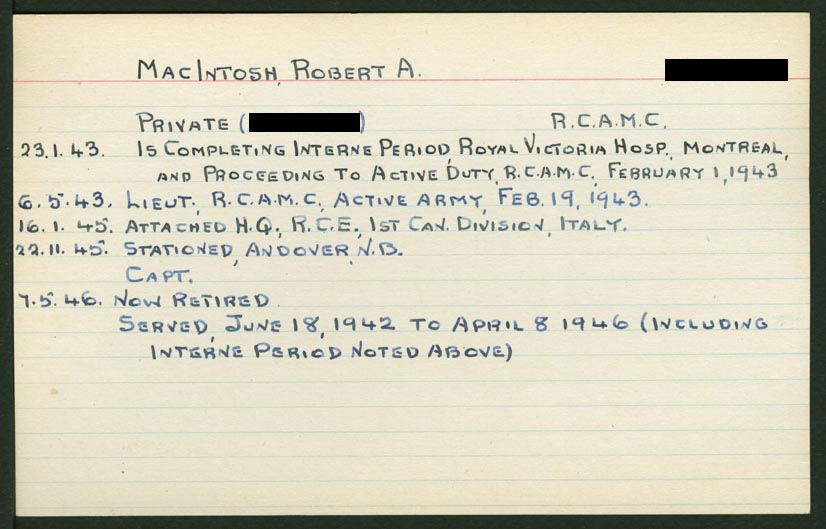 MACINTOSH, ROBERT A.
PRIVATE ( ) R.C.A.M.C.
23.1.43. IS COMPLETING INTERNE PERIOD, ROYAL VICTORIA HOSP., MONTREAL,
AND PROCEEDING TO ACTIVE DUTY, R.C.A.M.C., FEBRUARY 1, 1943
6.5.43. LIEUT., R.C.A.M.C., ACTIVE ARMY, FEB. 19, 1943.
16.1.45. ATTACHED H.Q., R.C.E., 1ST CAN. DIVISION, ITALY.
22.11.45. STATIONED, ANDOVER, N.B.
CAPT.
7.5.46. NOW RETIRED
SERVED, JUNE 18, 1942 TO APRIL 8 1946 (INCLUDING
INTERNE PERIOD NOTED ABOVE)